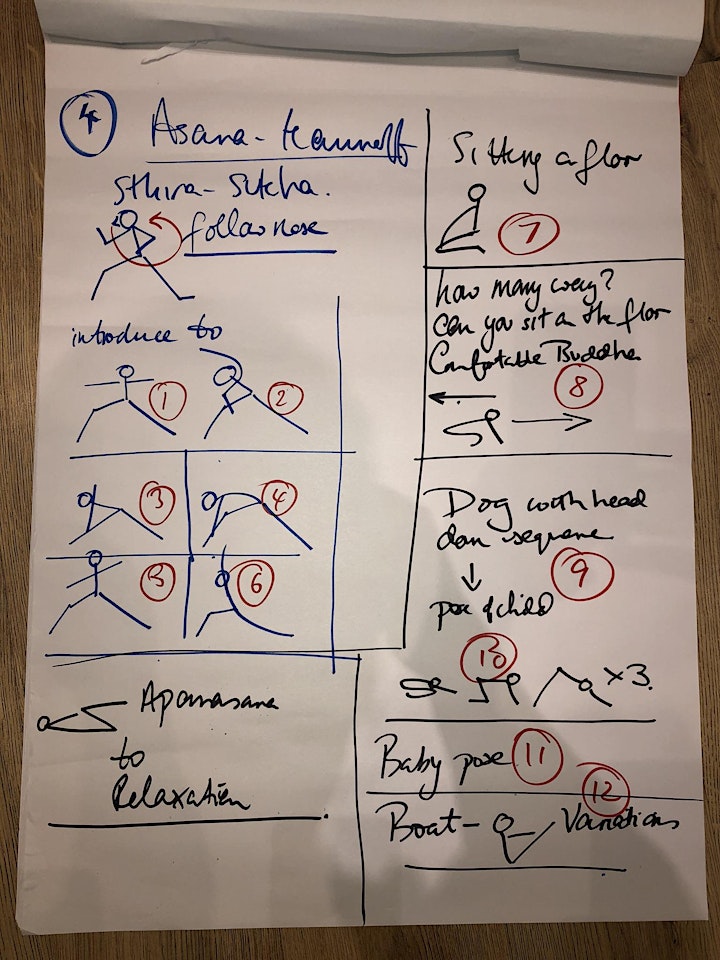 4
Asana -
Sthira - Sukha.
follow nose
introduce to
1
2
3
4
5
6
Apanasana
to
Relaxation
Sitting a flor
7
how many way?
Can you sit on the flor
Comfortable Buddha
8
Dog with head
down sequence
9
pose of child
10
x3.
Baby pose
11
12
Boat - Variations